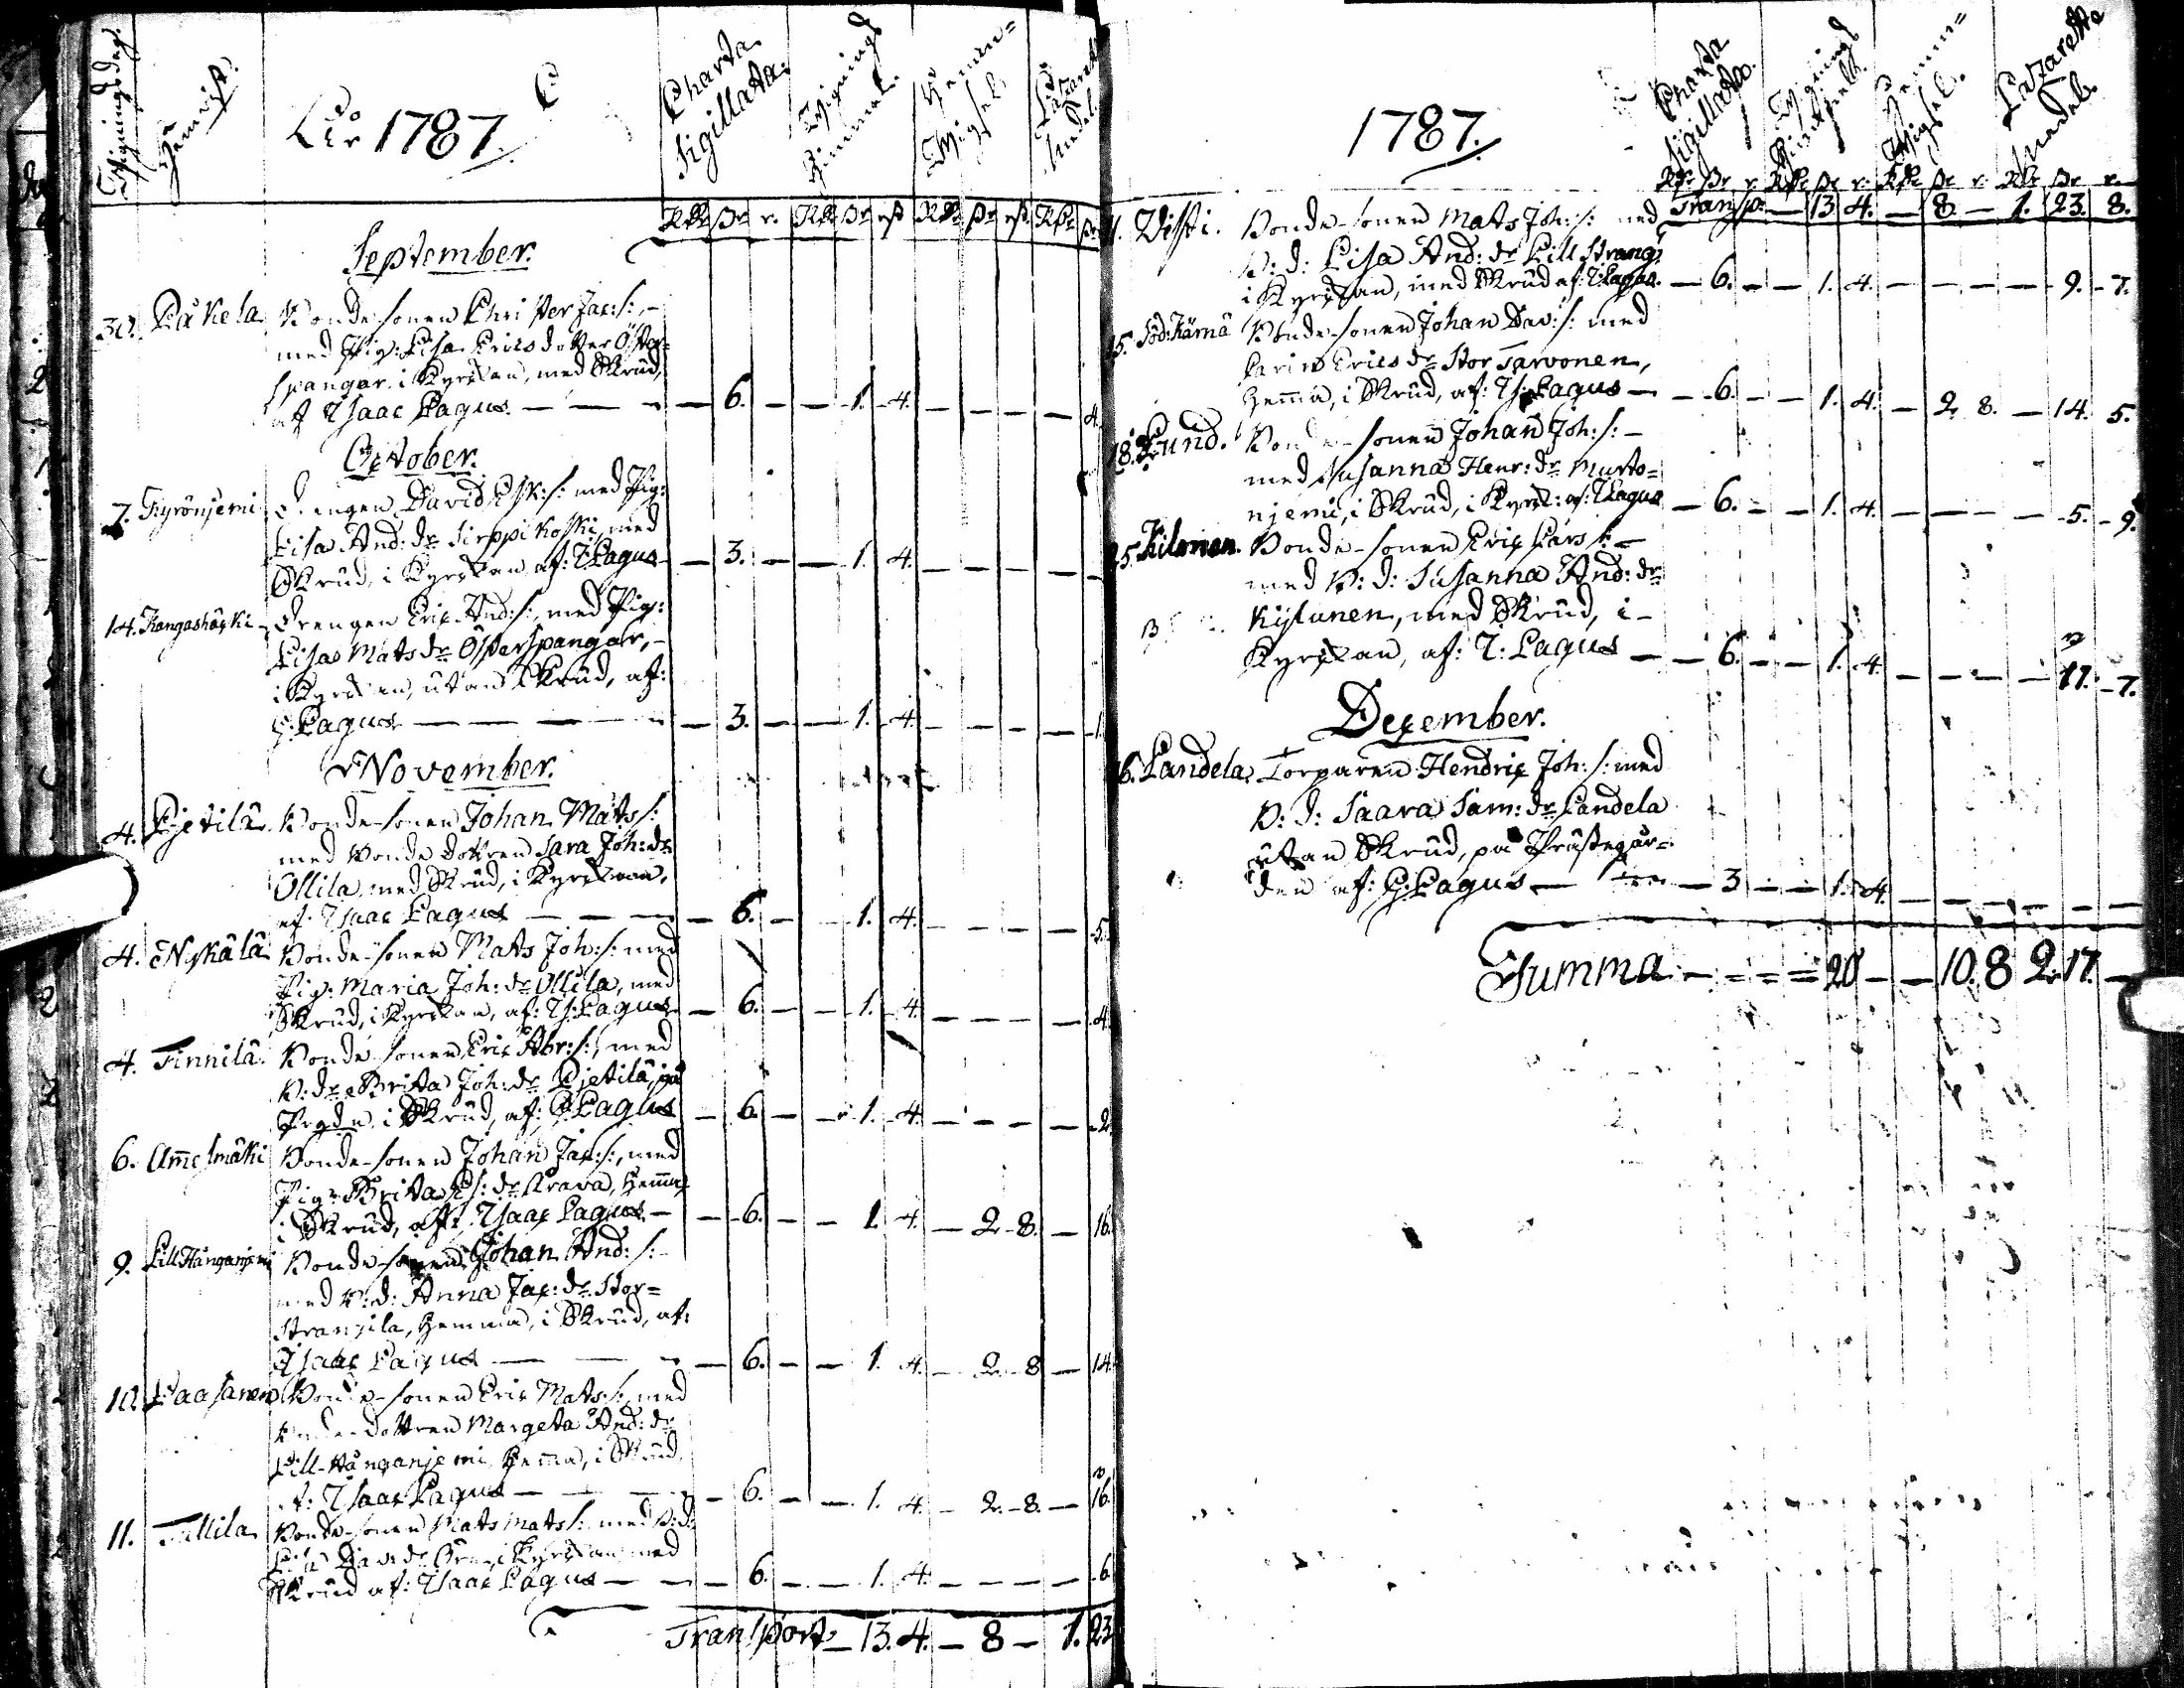 Wigningsdag.
Hemvist.
Åhr 1787.
Charta Sigillata.
Wignings Pinnmat.
Hemma Wigsel.
Lazarett Medel.
September.
30. Påkela Bonde-sonen Christer Jac:s:,
med Pig: Lisa Ericsdotter Öster-
spangar i Kyrckan, med Skrud,
af Isaac Lagus — 6. — 1. 4. — 4.
October.
7. Kyrönjemi Drengen David Esk:s: med Pig:
Lisa And: dr Sirppikoski, med
Skrud, i Kyrckan af: I Lagus — 3. — 1. 4. —
14. Kangashäcki Drengen Eric And:s:, med Pig:
Lisa Mats dr Österspangar,
i Kyrckan, utan Skrud, af:
G: Lagus — 3. — 1. 4. — 1.
November.
4. Pjetilä. Bonde-sonen Johan Mats s:
med Bonde dottren Sara Joh: dr
Ollila med Skrud, i Kyrckan,
af: Isaac Lagus — 6. — 1. 4. — 5.
4. Nykälä Bonde-sonen Mats Joh:s: med
Pig: Maria Joh: dr Ollila, med
Skrud, i Kyrckan, af: Is: Lagus — 6. — 1. 4. — 4.
4. Finnilä. Bonde-sonen Eric Abr:s:, med
B: dr Brita Joh: dr Pjetilä, på
Prgdn i Skrud, af: G: Lagus — 6. — 1. 4. — 2.
6. Am̄elmäki Bonde-sonen Johan Jac:s:, med
Pig: Brita Es: dr Krava, Hem̄a,
i Skrud, af: Isaac Lagus — 6. — 1. 4. — 2. 8. — 16.
9. Lill Hånganjemi Bonde-sonen Johan And: s:
med B: d: Anna Jac: dr Stor-
Strangila, Hemma, i Skrud, af:
Isaac Lagus — 6. — 1. 4. — 2. 8 — 14.
10. Paasanen Bonde-sonen Eric Mats:s:, med
Bonde-dottren Margeta And: dr
Lill-Hånganjemi Hem̄a, i Skrud,
af: Isaac Lagus — 6. — 1. 4. — 2. 8. — 16.
11. Tallila Bonde-sonen Mats Mats s: med B: d:
i Kyrckan med
Skrud af: Isaac Lagus — 6. — 1. 4. — 6.
Transport — 13. 4. — 8 — 1. 23
1787.
Charta Sigillata.
Wignings
Hemma Wigsel.
Lazaretts Medel.
Transp: — 13. 4. — 8. — 1. 23. 8.
11. Visti. Bonde-sonen Mats Joh:s: med
B: d: Lisa And: dr Lill Strang,
i Kyrckan, med Skrud af: I: Lagus. — 6. — 1. 4. — 9. 7.
15. Söd: Kärnä Bonde-sonen Johan Dav:s: med
Carin Erics dr Stor Tarvonen,
Hem̄a, i Skrud, af: Is: Lagus — 6. — 1. 4. — 2. 8. — 14. 5.
18. Lund. Bonde-sonen Johan Joh:s: —
med Susanna Henr: dr Murto-
njemi, i Skrud, i Kyrck: af: I Lagus — 6. — 1. 4. — 5. 9.
25. Kilonen. Bonde-sonen Eric Lars s: —
med B: d: Susanna And: dr
Kylunen, med Skrud, i
Kyrckan, af: I: Lagus — 6. — 1. 4. — 17. 7.
December.
16. Landela, Torparen Hendric Joh:s: med
B: d: Saara Sam: dr Landela
utan Skrud, på Prästegår-
den af: G: Lagus — 3 — 1. 4. —
Summa — 20 — 10. 8 2. 17. —